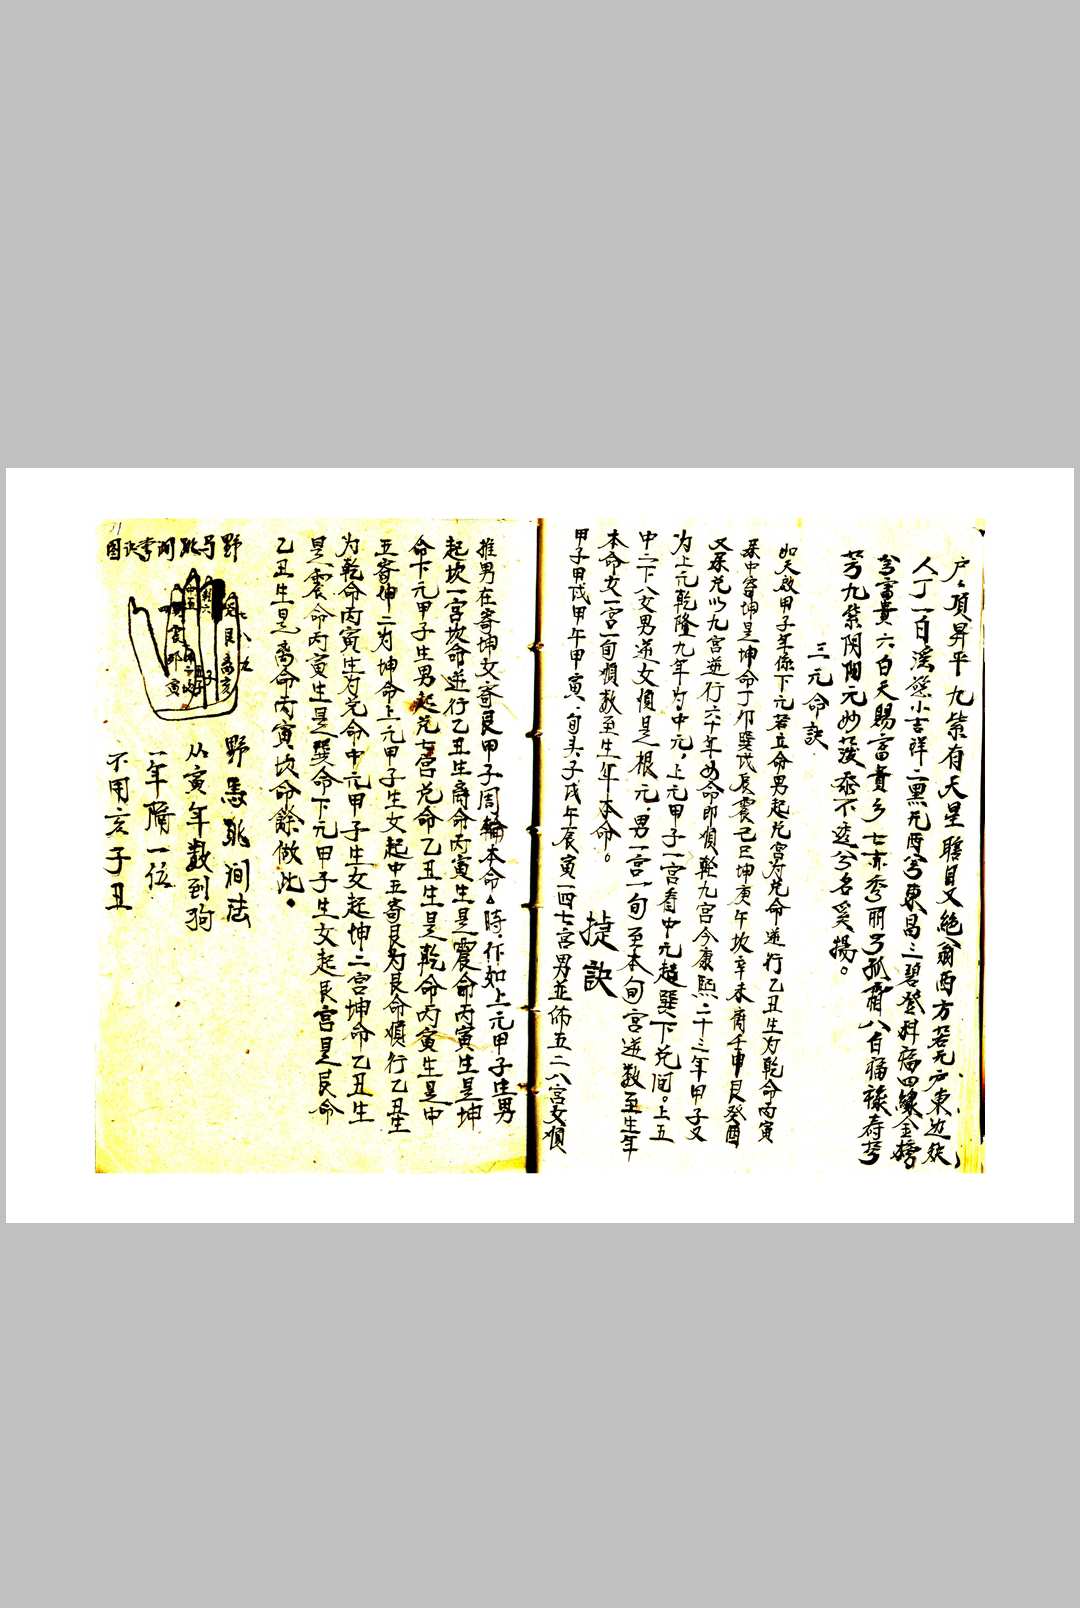 户户頂昇平九紫有天星瞎目又絕翁酉方若元戸東边発
人丁一白淫慾小吉祥二黑元酉兮東昌三碧登科病四綠金榜
兮富貴六白天賜富貴乡七赤秀丽了孤霜八白福祿寿兮
芳九紫閃閃元妙葭
不造兮名奚揚。
三元命訣
如天啟甲子年係下元若立命男起兌宮为兌命逆行乙丑生为乾命丙寅
寄坤是坤命丁卯巽戊辰震己巳坤庚午坎辛未离壬申艮癸酉
又系兌以九宮逆行六十年女命即順輪九宮今康熙二十三年甲子又
为上元乾隆九年为中元上元甲子一宮看中元起巽下兌间。上五
中二下八女男逆女順是根元男一宮一旬至本旬宮逆数至生年
本命女一宮一旬順数至生年本命。
捷訣
甲子甲戌甲午甲寅旬头子戌午辰寅一四七宮男並佈五二八宮女順
推男在寄坤女寄艮甲子周輪本命時作如上元甲子生男
起坎一宮坎命逆行乙丑生离命丙寅生是震命丙寅生是坤
命下元甲子生男起兌七宮兌命乙丑生是乾命丙寅生是中
五寄坤二为坤命上元甲子生女起中五寄艮为艮命順行乙丑生
为乾命丙寅生为兌命中元甲子生女起坤二宮坤命乙丑生
是震命丙寅生是巽命下元甲子生女起艮宮是艮命
乙丑生是离命丙寅坎命餘倣此。
野馬跳涧法
从寅年数到狗
一年隔一位
不用亥子丑
野马跳涧掌訣图